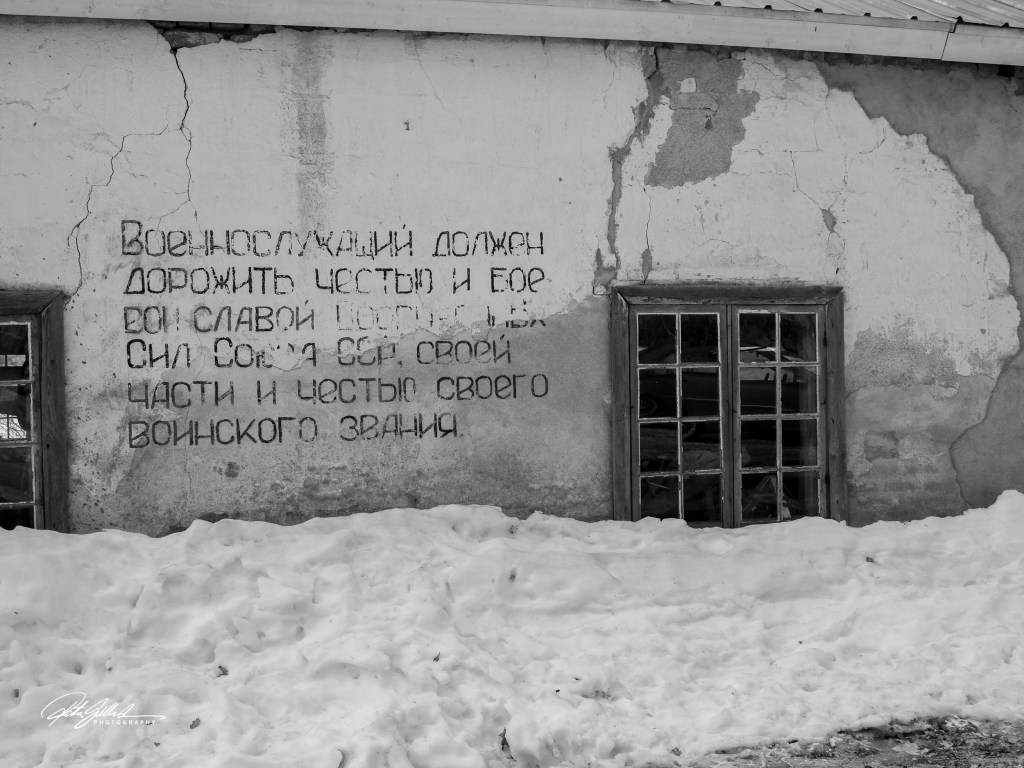 Военнослужащий должен
дорожить честью и бое-
славой
Сил Союза ССР, своей
части и честью своего
воинского звания.
PHOTOGRAPHY